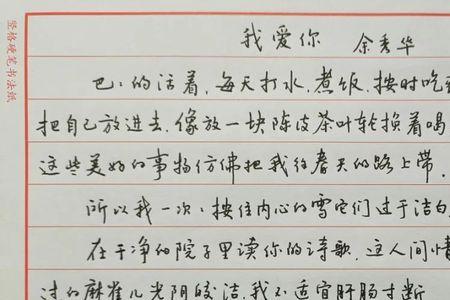 竖格硬笔书法纸
我爱你 余秀华
巴：的活着，每天打水，煮饭，按时吃
把自己放进去，像放一块陈皮茶叶轮换着喝
这些美好的事物仿佛把我往春天的路上带，
所以我一次：按住内心的雪它们过于洁白
在干净的院子里读你的诗歌，这人间情
过的麻雀儿光阴皎洁，我不适宜肝肠寸断